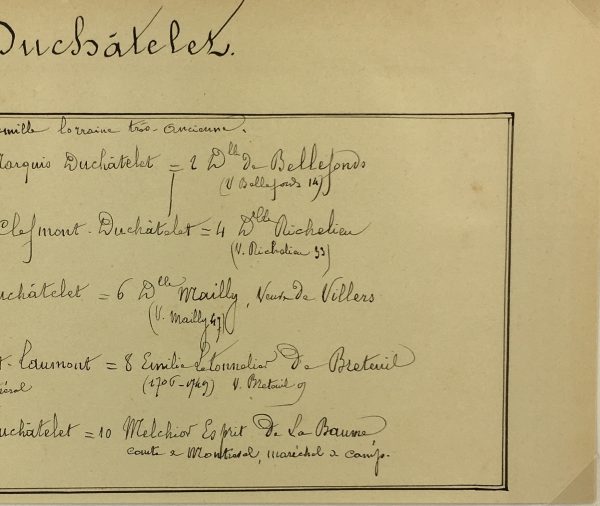 Duchâtelet.
famille lorraine très-ancienne.
Marquis Duchâtelet = 2 Dlle de Bellefonds
(V. Bellefonds 14)
Clefmont-Duchâtelet = 4 Dlle Richelieu
(V. Richelieu 33)
Duchâtelet = 6 Dlle Mailly, Veuve de Villers
(V. Mailly 47)
t-Laumont = 8 Emilie Letonnelier de Breteuil
néral (1706-1749) V. Breteuil 9
Duchâtelet = 10 Melchior Esprit de La Baume,
comte de Montrevel, maréchal de camp.